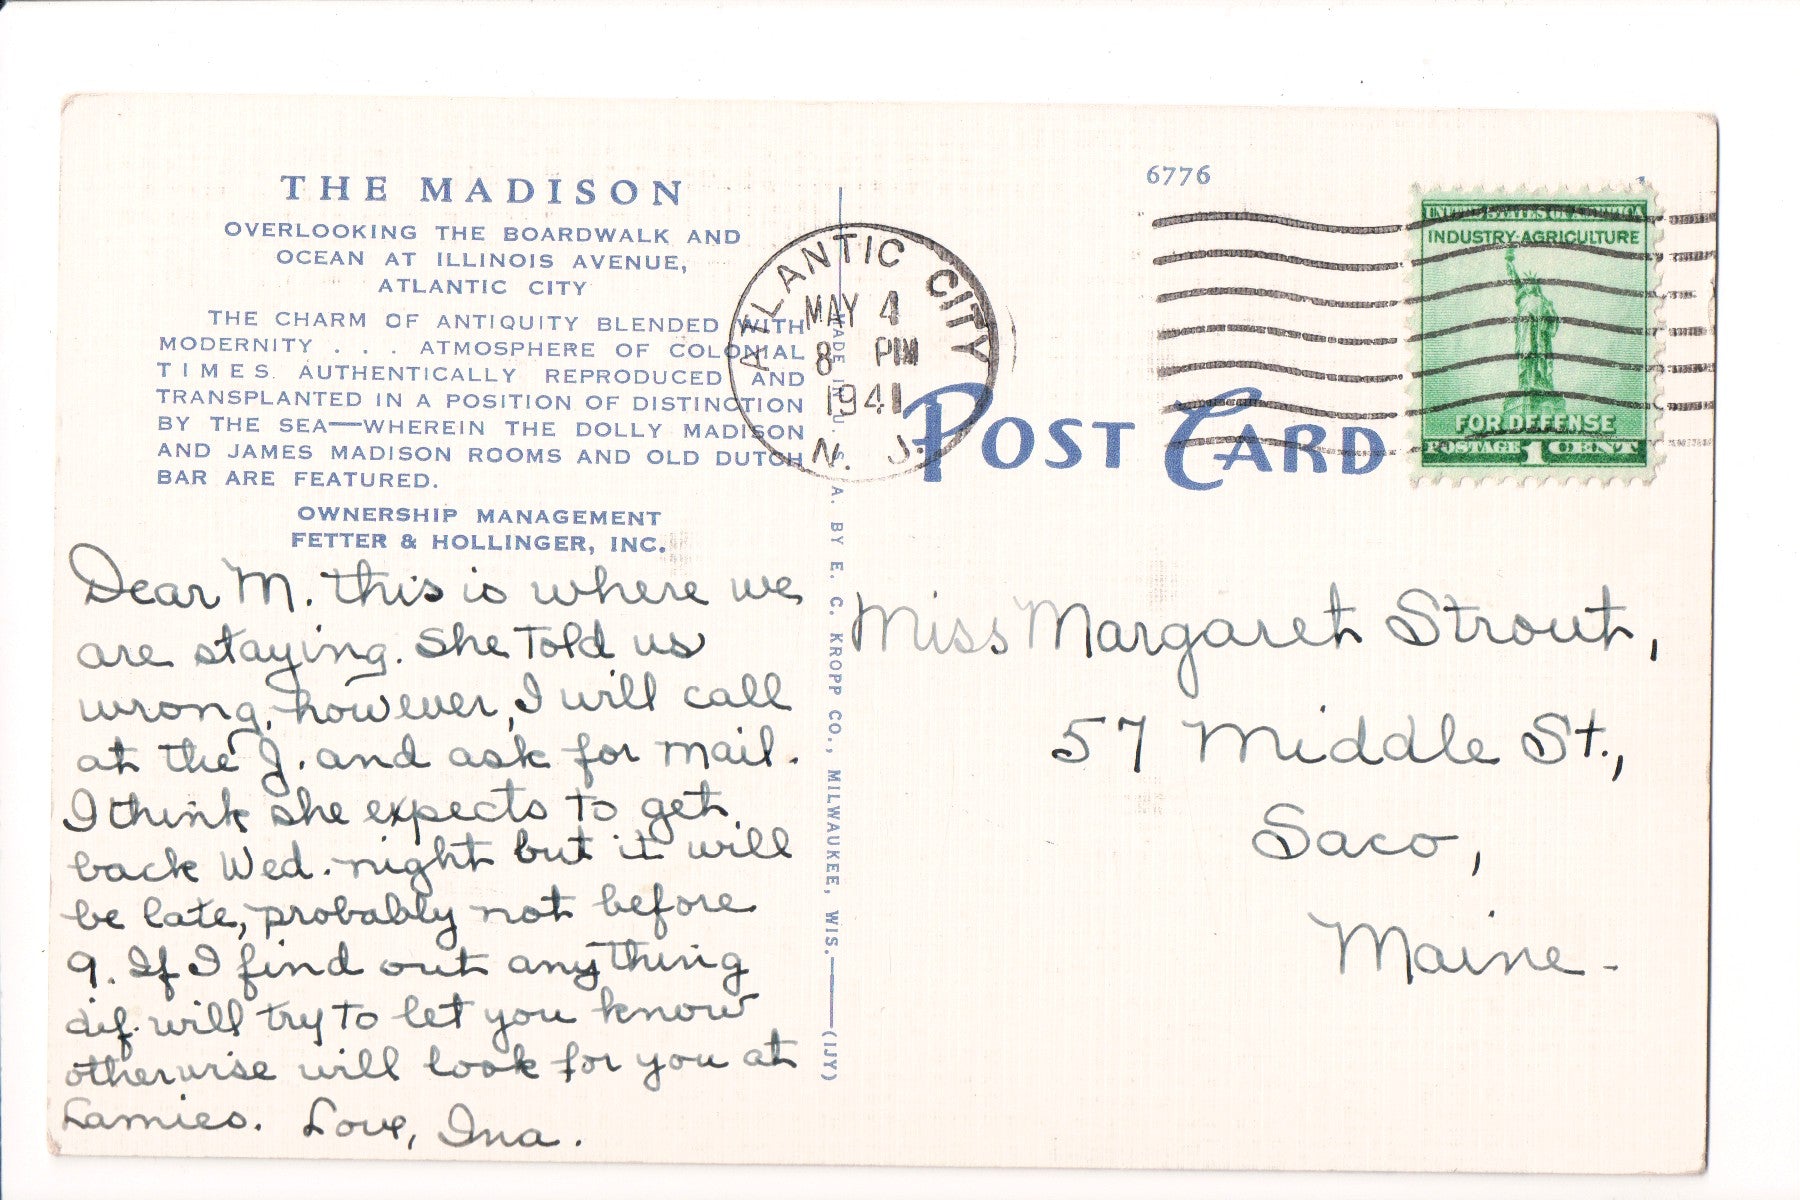 THE MADISON
OVERLOOKING THE BOARDWALK AND
OCEAN AT ILLINOIS AVENUE,
ATLANTIC CITY
THE CHARM OF ANTIQUITY BLENDED WITH
MODERNITY . . . ATMOSPHERE OF COLONIAL
TIMES AUTHENTICALLY REPRODUCED AND
TRANSPLANTED IN A POSITION OF DISTINCTION
BY THE SEA—WHEREIN THE DOLLY MADISON
AND JAMES MADISON ROOMS AND OLD DUTCH
BAR ARE FEATURED.
OWNERSHIP MANAGEMENT
FETTER & HOLLINGER, INC.
Dear M. this is where we
are staying. She Told us
wrong, however, I will call
at the J. and ask for mail.
I think she expects to get
back Wed. night but it will
be late, probably not before
9. If I find out anything
dif. will try to let you know
otherwise will look for you at
Lamies. Love, Ina.
MADE IN U. S. A. BY E. C. KROPP CO., MILWAUKEE, WIS.——(IJY)
ATLANTIC CITY
MAY 4
8 PM
1941
N. J.
6776
POST CARD
UNITED STATES OF AMERICA
INDUSTRY-AGRICULTURE
FOR DEFENSE
POSTAGE 1 CENT
Miss Margaret Strout,
57 Middle St.,
Saco,
Maine-